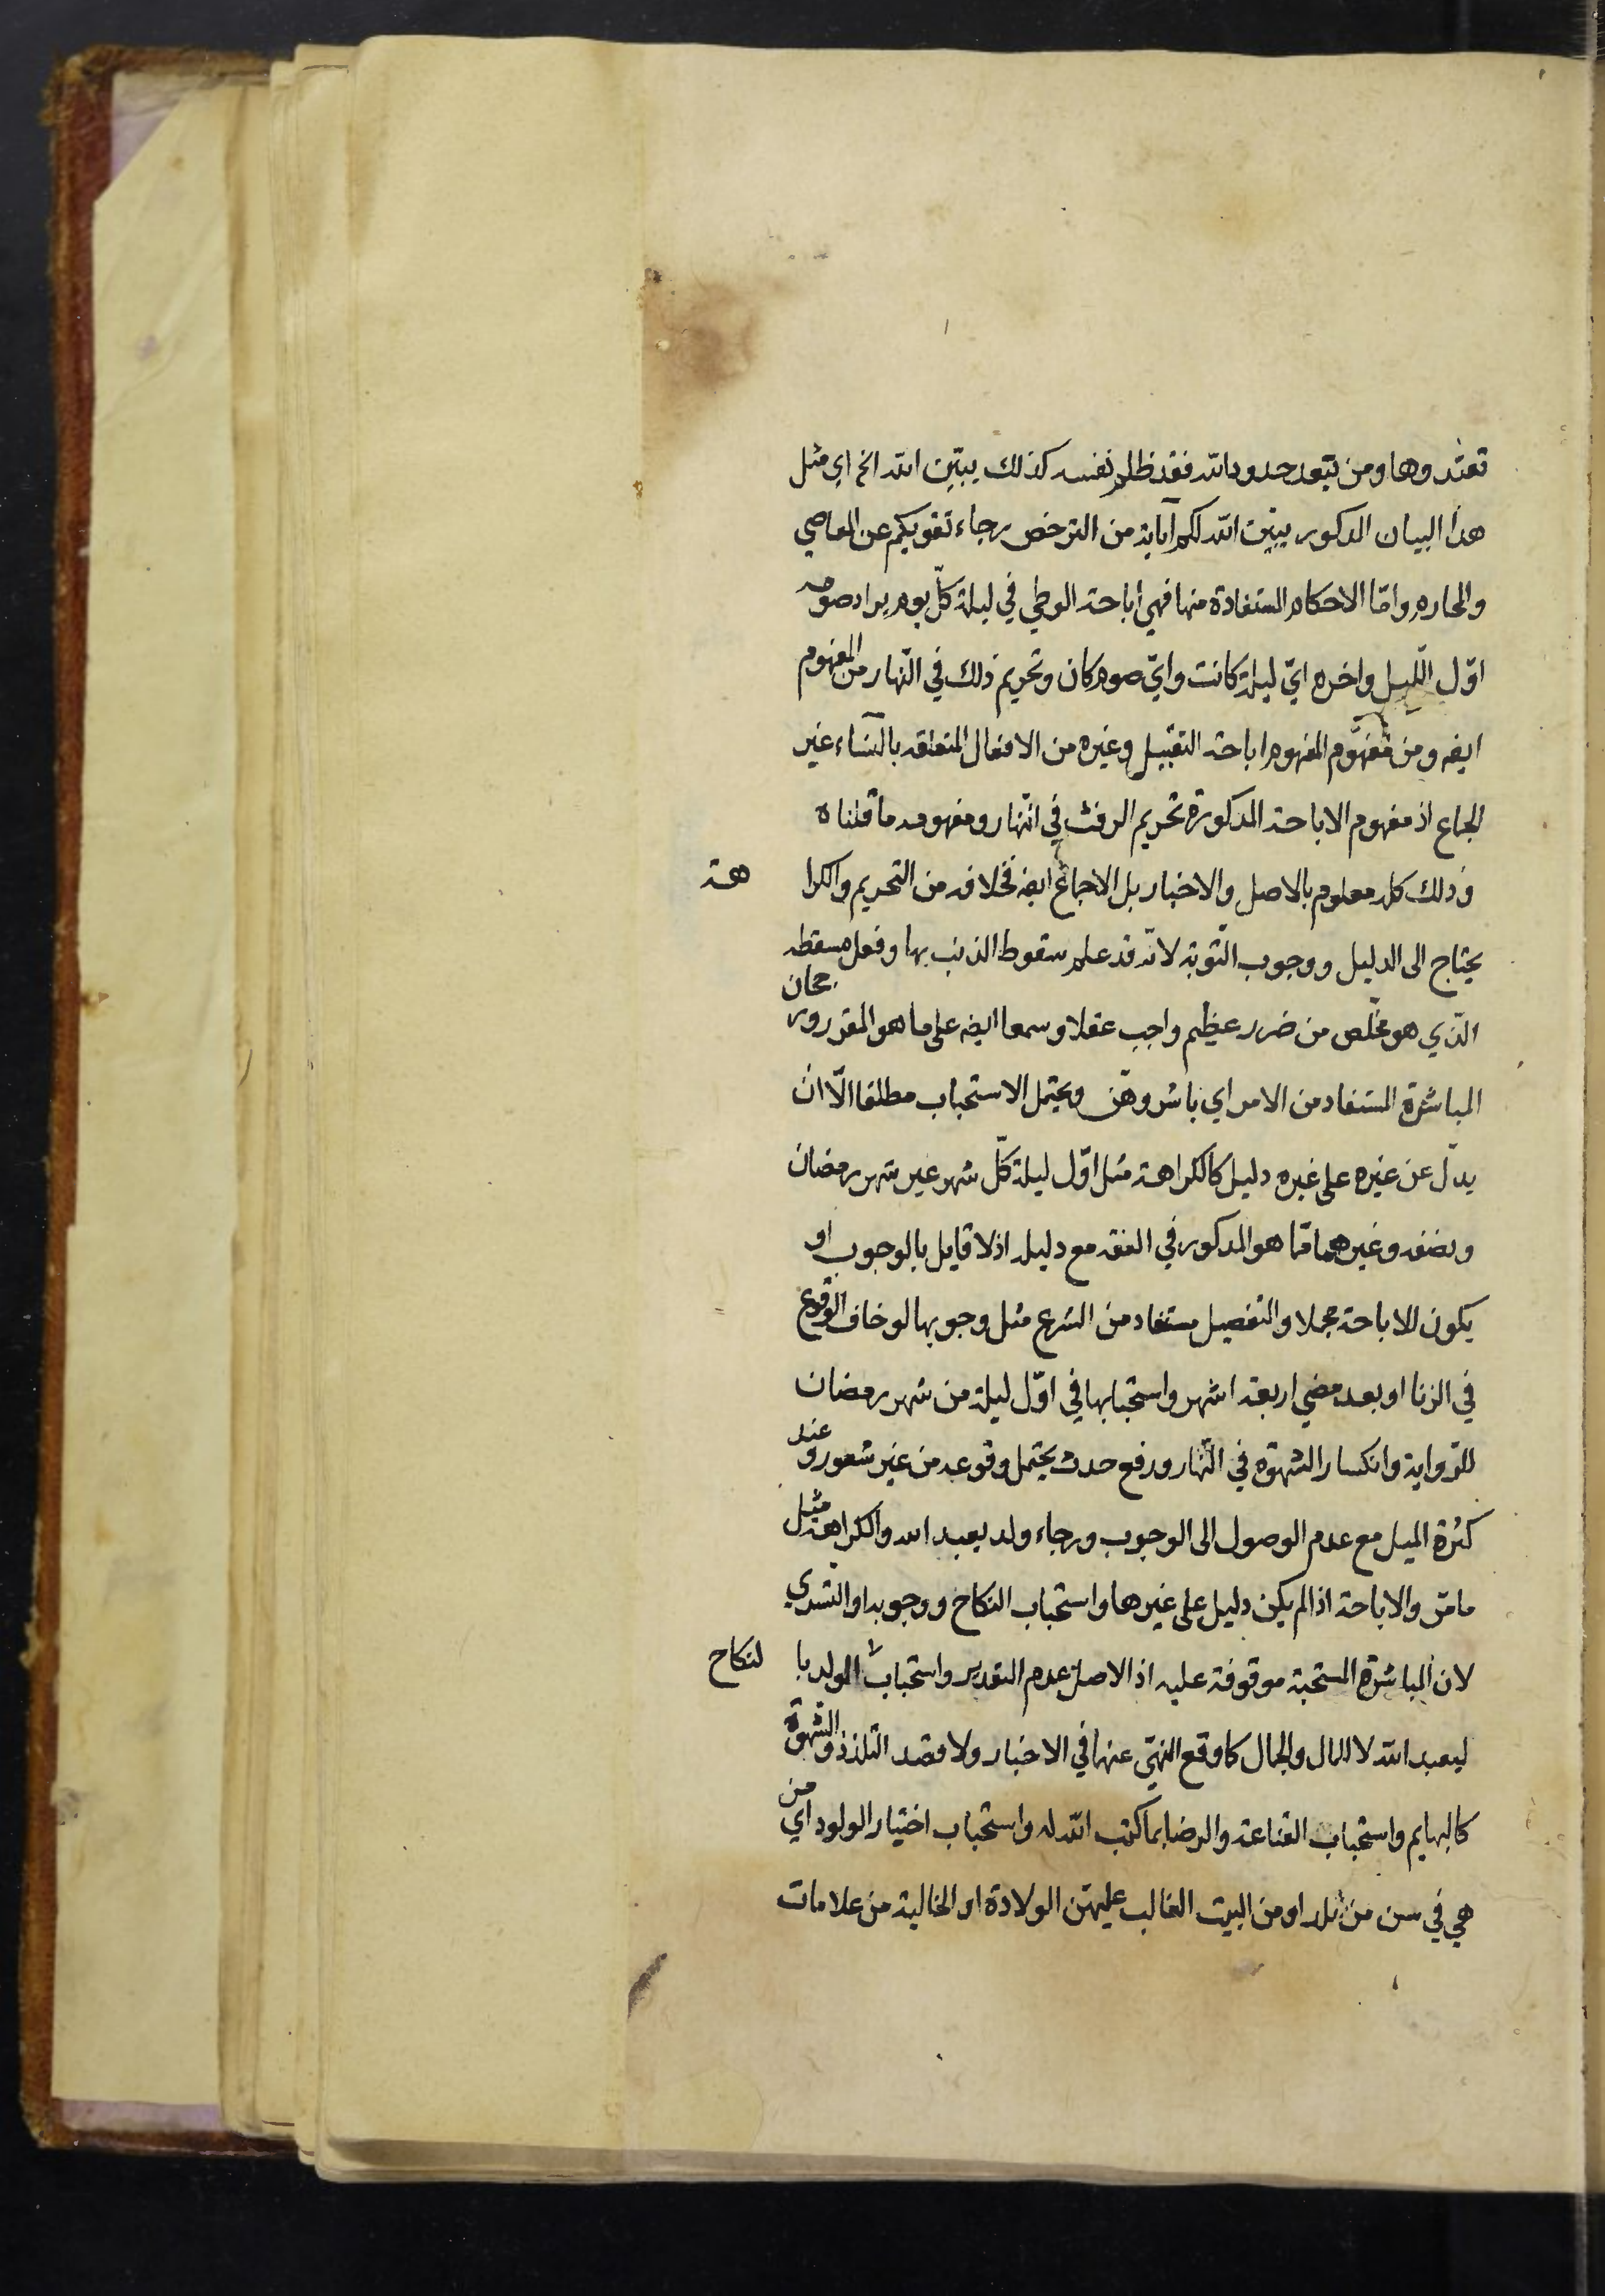 تعتدوها ومن يتعد حدود الله فقد ظلم نفسه كذلك يبيّن الله الخ اي مثل
هذا البيان المذكور يبيّن الله لكم آياته من الترخص رجاء تقويكم عن المعاصي
والمحارم وامّا الاحكام المستفادة منها فهي اباحة الوطي في ليلة كلّ يوم يراد صومه
اوّل اللّيل واخره ايّ ليلة كانت وايّ صوم كان وتحريم ذلك في النّهار من المفهوم
ايضه ومن مفهوم المفهوم اباحة التقبيل وغيره من الافعال المتعلقه بالنساء غير
الجماع اذ مفهوم الاباحة المذكورة تحريم الرفث في النّهار ومفهومه ما قلناه
وذلك كله معلوم بالاصل والاخبار بل الاجماع ايضه فخلافه من التحريم والكراهة
يحتاج الى الدليل ووجوب التّوبة لانّه قد علم سقوط الذنب بها وفعل مسقطه
الّذي هو مخلّص من ضرر عظيم واجب عقلا وسمعا ايضه على ما هو المقرر ورجحان
المباشرة المستفاد من الامر اي باشروهنّ ويحتمل الاستحباب مطلقا الّا ان
يدلّ عن غيره على غيره دليل كالكراهة مثل اوّل ليلة كلّ شهر غير شهر رمضان
ونصفه وغيرهما ممّا هو المذكور في الفقه مع دليله اذ لا قايل بالوجوب او
يكون للاباحة مجملا والتفصيل مستفاد من الشرع مثل وجوبها لو خاف الوقوع
في الزنا او بعد مضي اربعة اشهر واستحبابها في اوّل ليلة من شهر رمضان
للرّواية وانكسار الشهوة في النّهار ورفع حدث يحتمل وقوعه من غير شعور وعند
كثرة الميل مع عدم الوصول الى الوجوب ورجاء ولد يعبد الله والكراهة مثل
ما مرّ والاباحة اذا لم يكن دليل على غيرها واستحباب النكاح ووجوبه او التسري
لان المباشرة المستحبة موقوفة عليه اذ الاصل عدم التقدير واستحباب الولد بالنكاح
ليعبد الله لا للمال والجمال كما وقع النهي عنها في الاخبار ولا قصد التلذذ والشهوة
كالبهايم واستحباب القناعة والرضا بما كتب الله له واستحباب اختيار الولود اي من
هي في سن من تلد او من البيت الغالب عليهنّ الولادة او الخالية من علامات